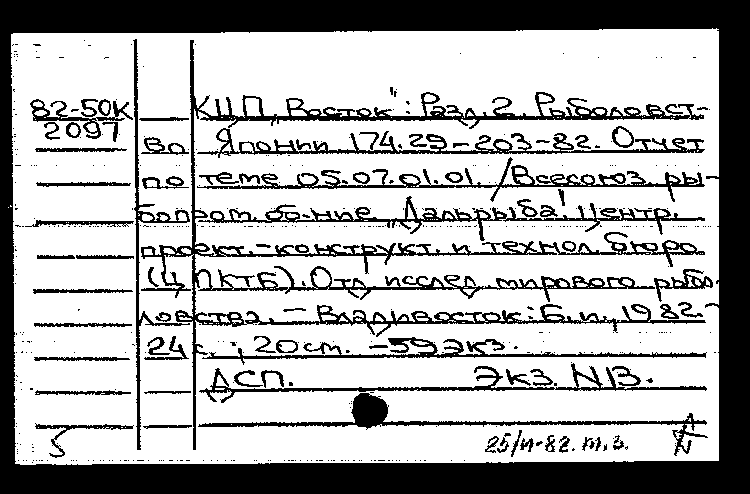 82-50К
2097
КЦП „Восток": Разд. 2. Рыболовст-
во Японии 174.29-203-82. Отчет
по теме 05.07.01.01. /Всесоюз. ры-
бопром. об-ние „Дальрыба". Центр.
проект.-конструкт. и технол. бюро
(ЦПКТБ). Отд. исслед. мирового рыбо-
ловства. – Владивосток: Б.и., 1982. –
24 с.; 20 см. – 59 экз.
ДСП. Экз. N13.
5 25/II-82. т.з.